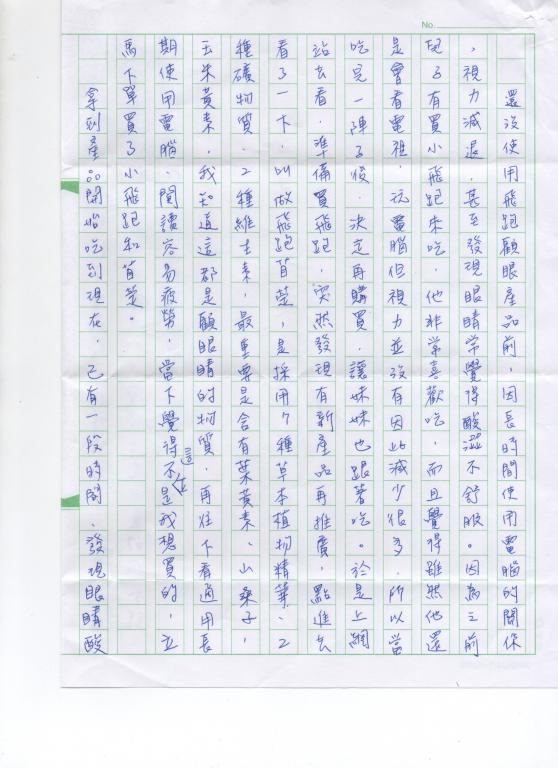 No.
還沒使用飛跑顧眼產品前，因長時間使用電腦的關係
，視力減退，甚至發現眼睛常覺得酸澀不舒服。因為之前
兒子有買小飛跑來吃，他非常喜歡吃，而且覺得雖然他還
是會看電視、玩電腦但視力並沒有因此減少很多，所以當
吃完一陣子後，決定再購買，讓妹妹也跟著吃。於是上網
站去看，準備買飛跑，突然發現有新產品再推廣，點進去
看了一下，叫做飛跑苜楚，是採用7種草本植物精華、2
種礦物質、2種維生素，最重要是含有葉黃素、山桑子，
玉米黃素，我知道這都是顧眼睛的物質，再往下看適用長
期使用電腦、閱讀容易疲勞，當下覺得這不正是我想買的，立
馬下單買了小飛跑和苜楚。
拿到產品開始吃到現在，已有一段時間，發現眼睛酸